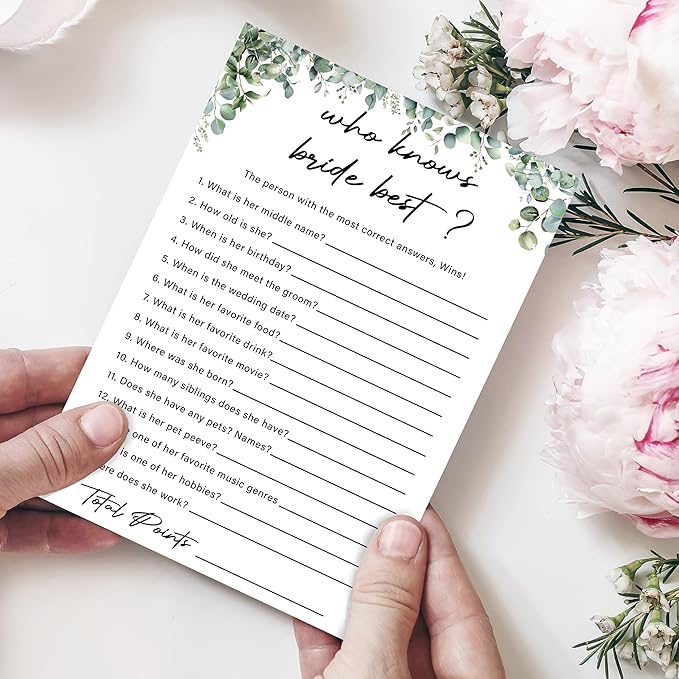 who knows
bride best ?
The person with the most correct answers, Wins!
1. What is her middle name?
2. How old is she?
3. When is her birthday?
4. How did she meet the groom?
5. When is the wedding date?
6. What is her favorite food?
7. What is her favorite drink?
8. What is her favorite movie?
9. Where was she born?
10. How many siblings does she have?
11. Does she have any pets? Names?
12. What is her pet peeve?
one of her favorite music genres
is one of her hobbies?
does she work?
Total Points